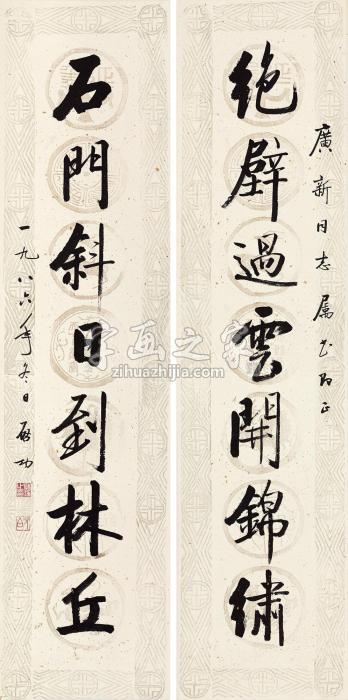 廣新同志屬書即正
絶壁過雲開錦繡
石門斜日到林丘
一九八六年冬日啟功
字画之家
zihuazhijia.com